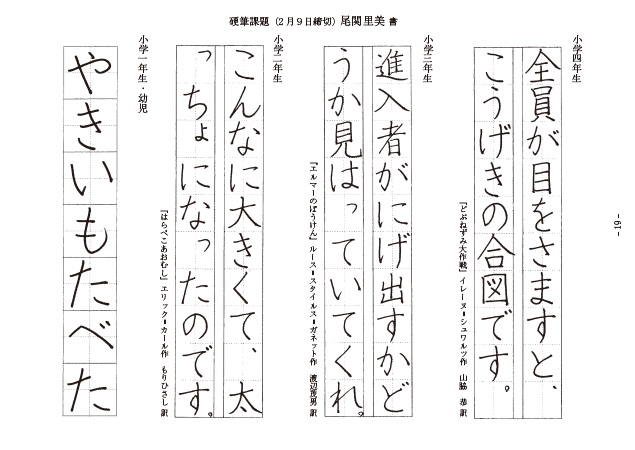 硬筆課題（２月９日締切）尾関里美 書
小学四年生
全員が目をさますと、
こうげきの合図です。
『どぶねずみ大作戦』イレーヌ＝シュワルツ作　山脇　恭 訳
小学三年生
進入者がにげ出すかど
うか見はっていてくれ。
『エルマーのぼうけん』ルース＝スタイルス＝ガネット作　渡辺茂男 訳
小学二年生
こんなに大きくて、太
っちょになったのです。
『はらぺこあおむし』エリック＝カール作　もりひさし 訳
小学一年生・幼児
やきいもたべた
- 19 -